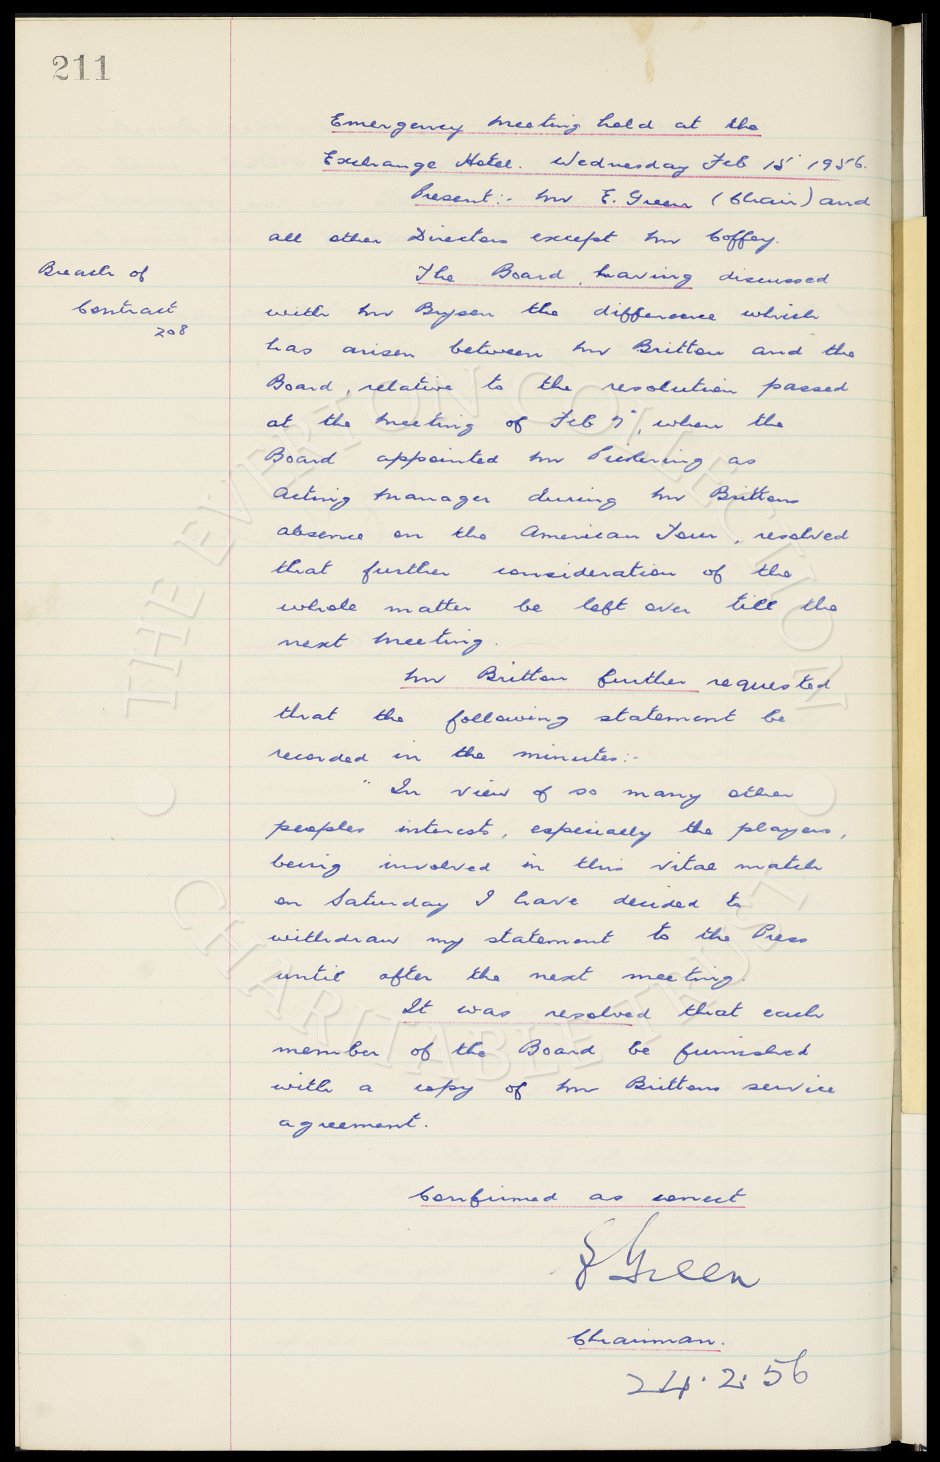 211
Emergency Meeting held at the
Exchange Hotel. Wednesday Feb 15 1956.
Present:- Mr E. Green (Chair) and
all other Directors except Mr Coffey.
Breach of
Contract
208
The Board, having discussed
with Mr Bryson the difference which
has arisen between Mr Britton and the
Board, relative to the resolution passed
at the Meeting of Feb 7", when the
Board appointed Mr Pickering as
Acting Manager during Mr Brittons
absence on the American Tour, resolved
that further consideration of the
whole matter be left over till the
next Meeting.
Mr Britton further requested
that the following statement be
recorded in the minutes:-
" In view of so many other
peoples interests, especially the players,
being involved in this vital match
on Saturday I have decided to
withdraw my statement to the Press
until after the next meeting.
It was resolved that each
member of the Board be furnished
with a copy of Mr Brittons service
agreement.
Confirmed as correct
E Green
Chairman.
24.2.56
THE EVERTON COLLECTION
CHARITABLE TRUST